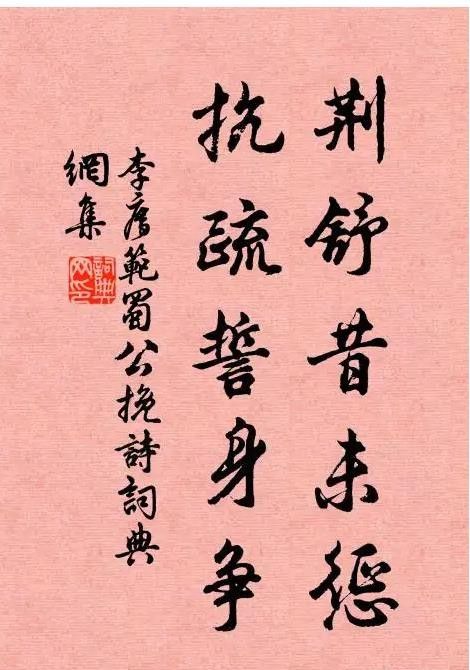 荆舒昔未惩
抗疏誓身争
李廌範蜀公挽詩詞典
網集
詞典網印